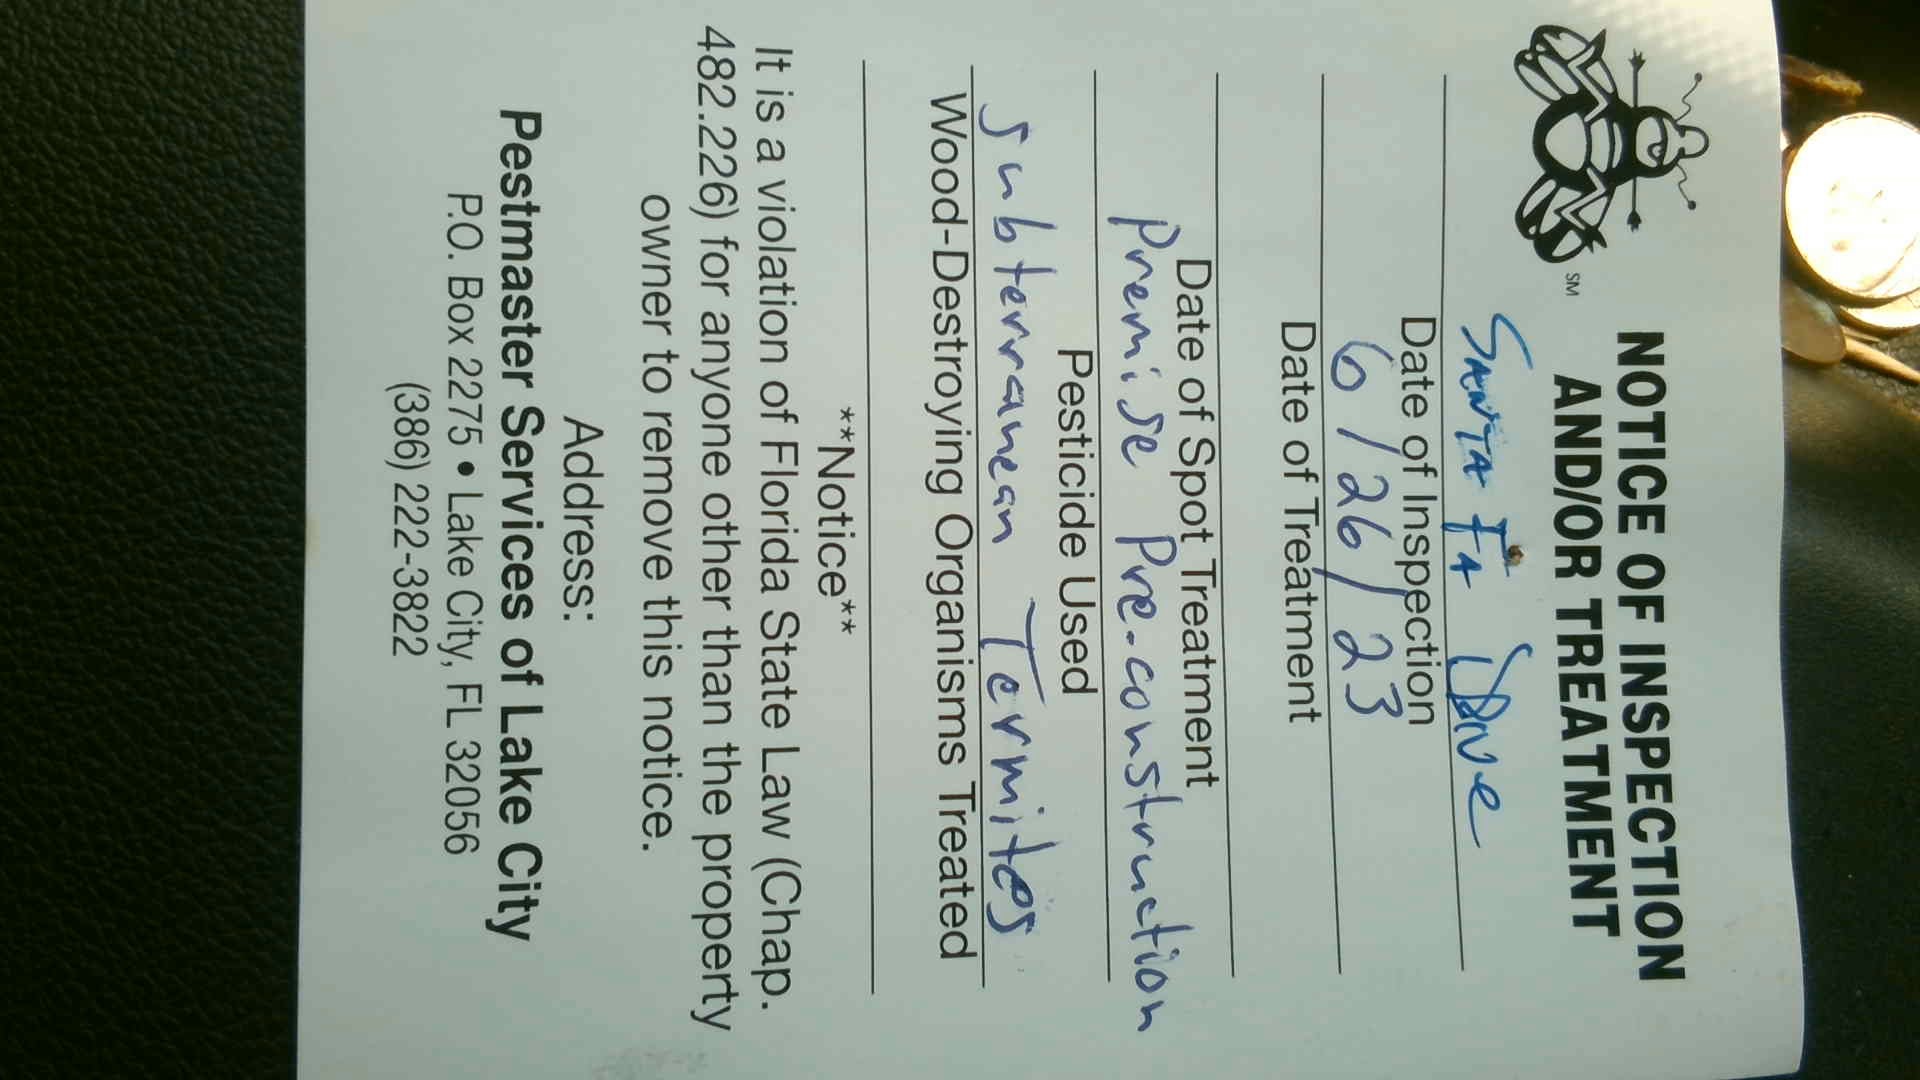 NOTICE OF INSPECTION
AND/OR TREATMENT
SM
SANTA FA Drive
Date of Inspection
6/26/23
Date of Treatment
Date of Spot Treatment
Premise Pre-construction
Pesticide Used
Subterranean Termites
Wood-Destroying Organisms Treated
**Notice**
It is a violation of Florida State Law (Chap.
482.226) for anyone other than the property
owner to remove this notice.
Address:
Pestmaster Services of Lake City
P.O. Box 2275 • Lake City, FL 32056
(386) 222-3822